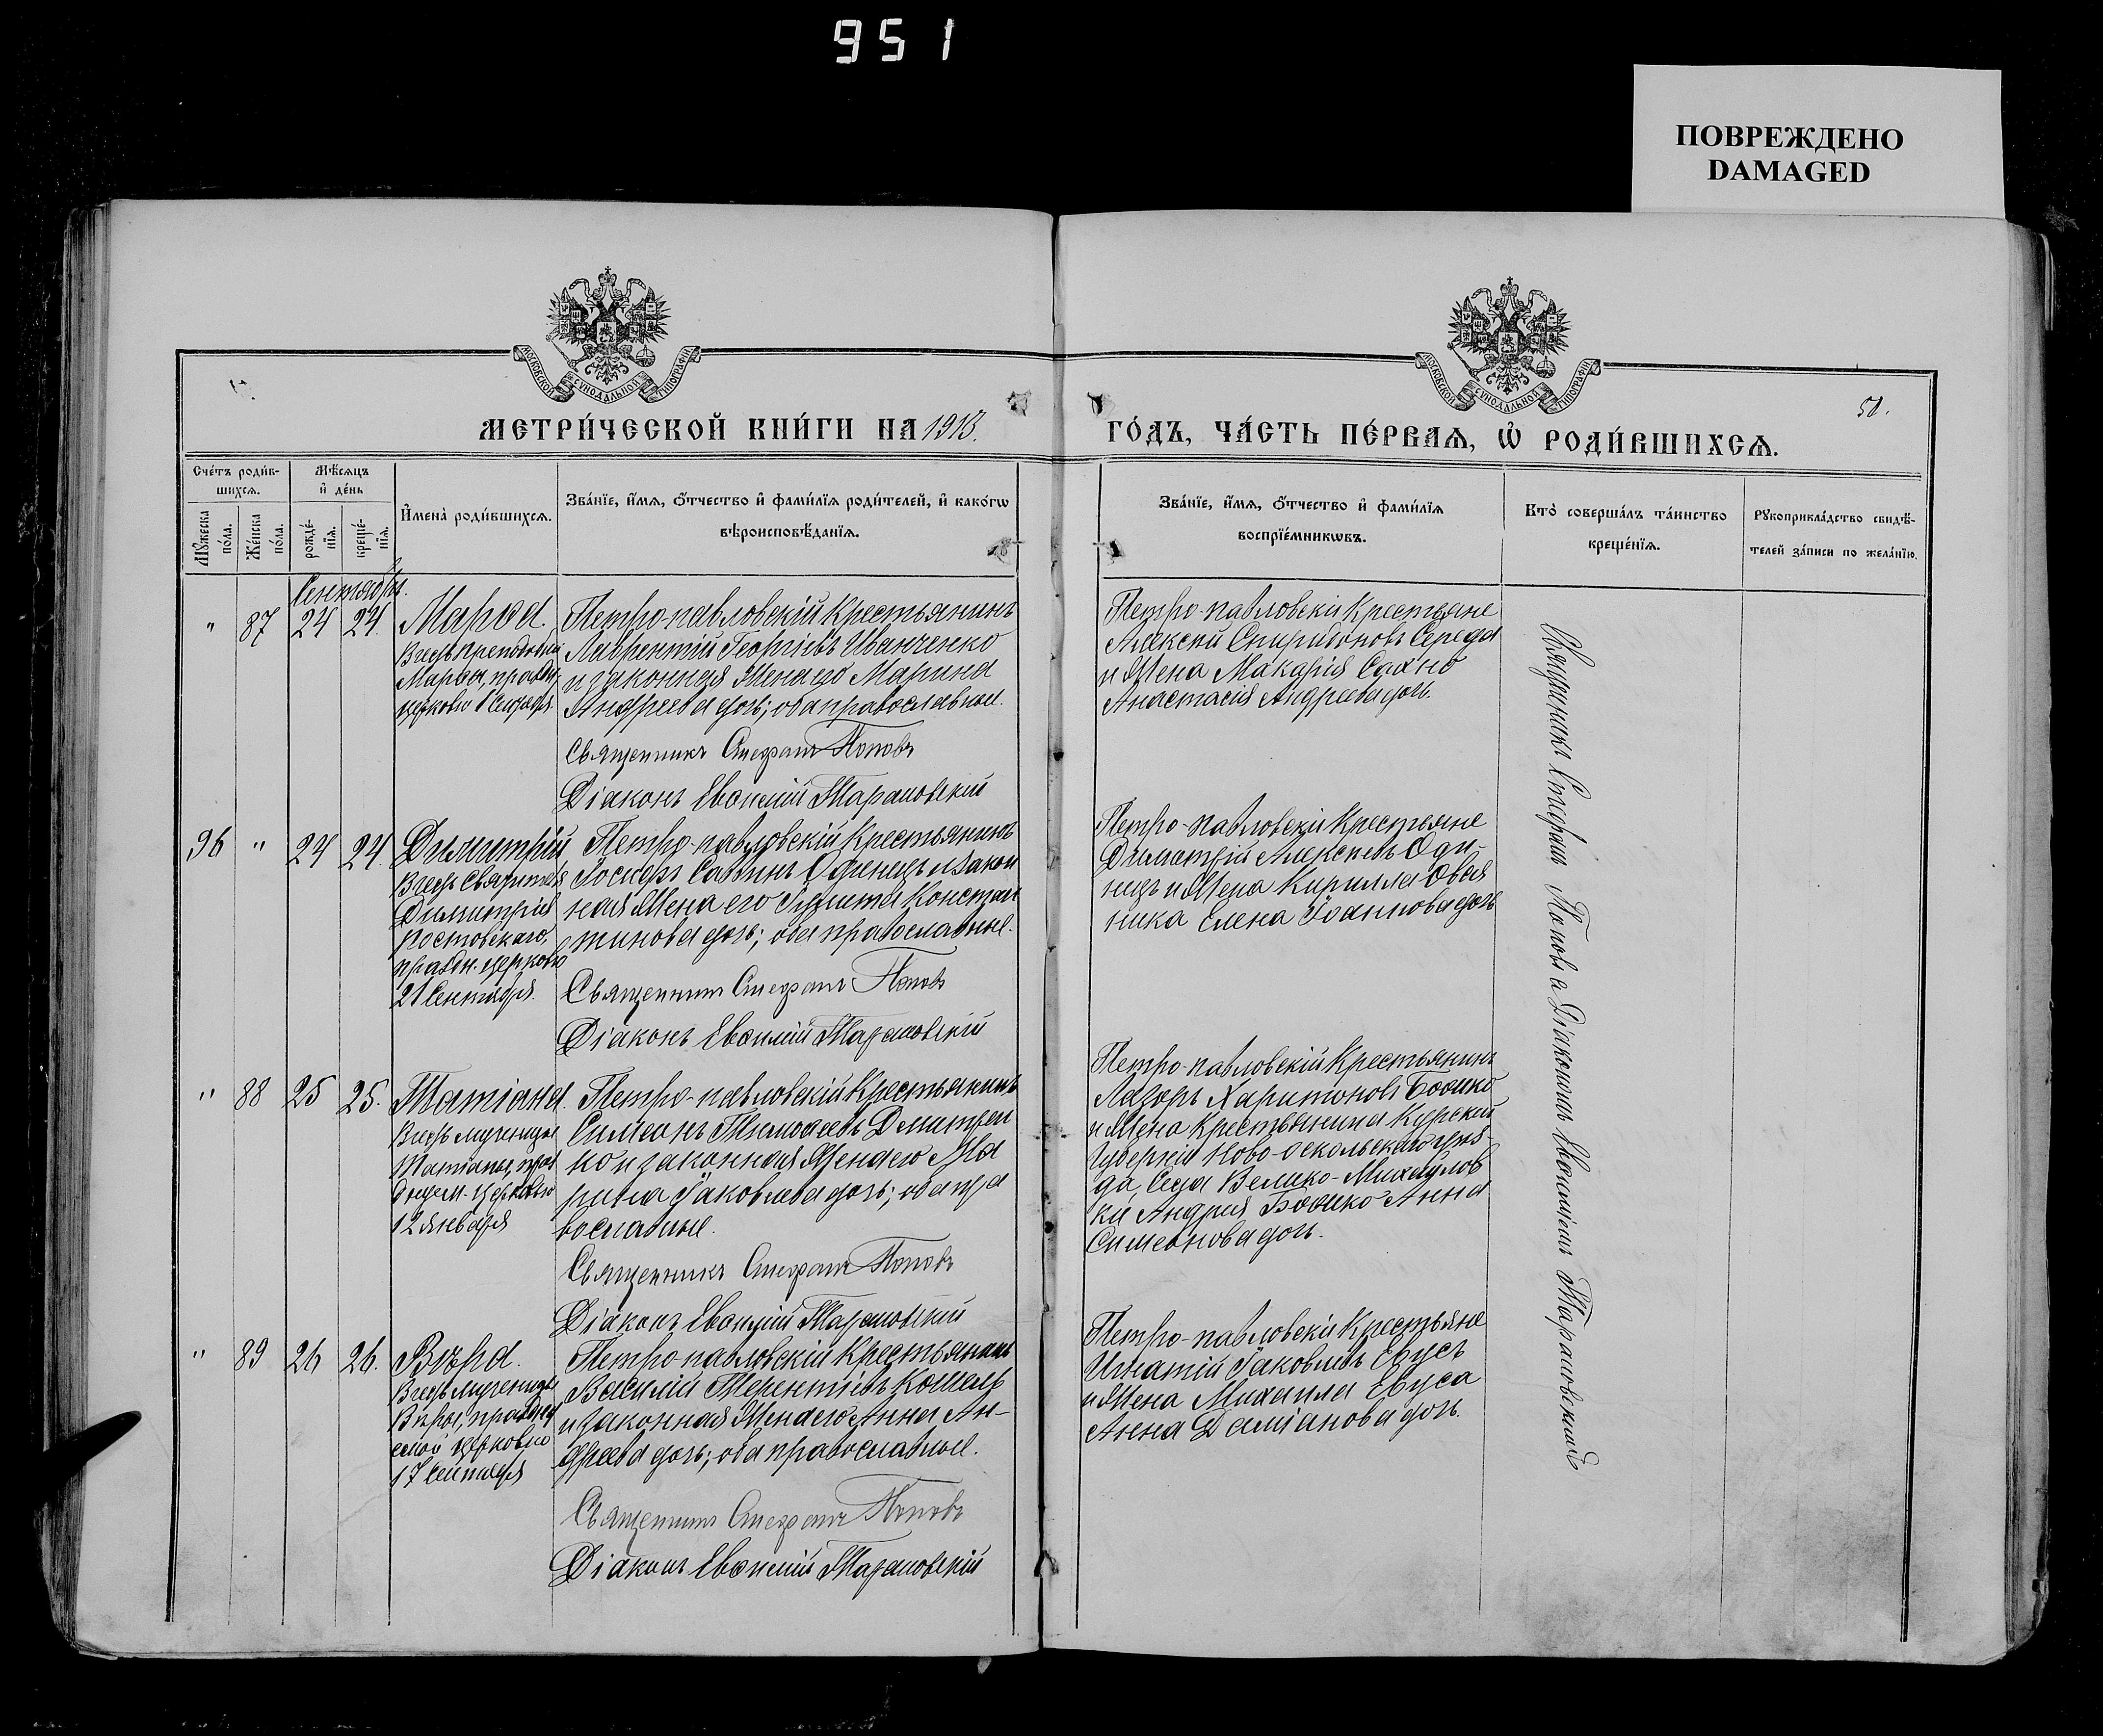 951
ПОВРЕЖДЕНО
DAMAGED
МОСКОВСКОЙ СѴНОДАЛЬНОЙ ТИПОГРАФІИ
МОСКОВСКОЙ СѴНОДАЛЬНОЙ ТИПОГРАФІИ
50.
МЕТРИ́ЧЕСКОЙ КНИ́ГИ НА 1913.
ГО́ДЪ, ЧА́СТЬ ПЕ́РВАѦ, Ѡ҆ РОДИ́ВШИХСѦ.
Сче́тъ роди́в-
шихсѧ.
Мѣ́сѧцъ
и҆ де́нь
Мꙋ́жеска
по́ла.
Же́нска
по́ла.
рожде́-
нїѧ.
креще́-
нїѧ.
И҆мена̀ роди́вшихсѧ.
Зва́нїе, и҆́мѧ, ѻ҆́тчество и҆ фами́лїѧ роди́телей, и҆ како́гѡ
вѣроисповѣ́данїѧ.
Зва́нїе, и҆́мѧ, ѻ҆́тчество и҆ фами́лїѧ
воспрїе́мникѡвъ.
Кто̀ соверша́лъ та́инство
креще́нїѧ.
Рꙋкоприкла́дство свидѣ́-
телей за́писи по жела́нїю.
Сентябрь.
" 87 24 24.
Марѳа.
Въ честь Преподобной
Марѳы, праздн.
церковью 1 Сентября.
Петро-павловскій Крестьянинъ
Лаврентій Георгіевъ Иванченко
и законная жена его Марина
Андреева дочь; оба православные.
Священникъ Стефанъ Поповъ
Діаконъ Евѳимій Тарановскій
Петро-павловскіе Крестьяне
Алексѣй Спиридоновъ Середа
и жена Макарія Сахно
Анастасія Андреева дочь.
96 " 24 24.
Димитрій
Въ честь Святителя
Димитрія
Ростовскаго,
праздн. церковью
21 Сентября.
Петро-павловскій Крестьянинъ
Іосифъ Саввинъ Одинецъ и закон
ная жена его Константинова дочь; оба православные.
Священникъ Стефанъ Поповъ
Діаконъ Евѳимій Тарановскій
Петро-павловскіе Крестьяне
Димитрій Алексѣевъ Оди-
нецъ и жена Кирилла
Елена Іоаннова дочь
" 88 25 25.
Татіана.
Въ честь мученицы
Татіаны, праз
днуем. церковью
12 Января
Петро-павловскій Крестьянинъ
Симеонъ Тимоѳеевъ Дмитрен
ко и законная жена его Ма
рина Іаковлева дочь; оба пра
вославные.
Священникъ Стефанъ Поповъ
Діаконъ Евѳимій Тарановскій
Петро-павловскій Крестьянинъ
Лазарь Харитоновъ
и жена Крестьянина Курской
Губерніи Ново-оскольскаго уѣз-
да, Села Велико-Михайлов
ки Андрея Анна
Симеонова дочь.
" 89 26 26.
Вѣра.
Въ честь мученицы
Вѣры, празднуе
емой церковью
17 Сентября
Петро-павловскій Крестьянинъ
Василій Терентіевъ Кошель
и законная жена его Анна Ан-
дреева дочь; оба православные.
Священникъ Стефанъ Поповъ
Діаконъ Евѳимій Тарановскій
Петро-павловскіе Крестьяне
Игнатій Іаковлевъ Евусъ
и жена Михаила Евуса
Анна Даміанова дочь.
Священникъ Стефанъ Поповъ съ Діакономъ Евѳиміемъ Тарановскимъ